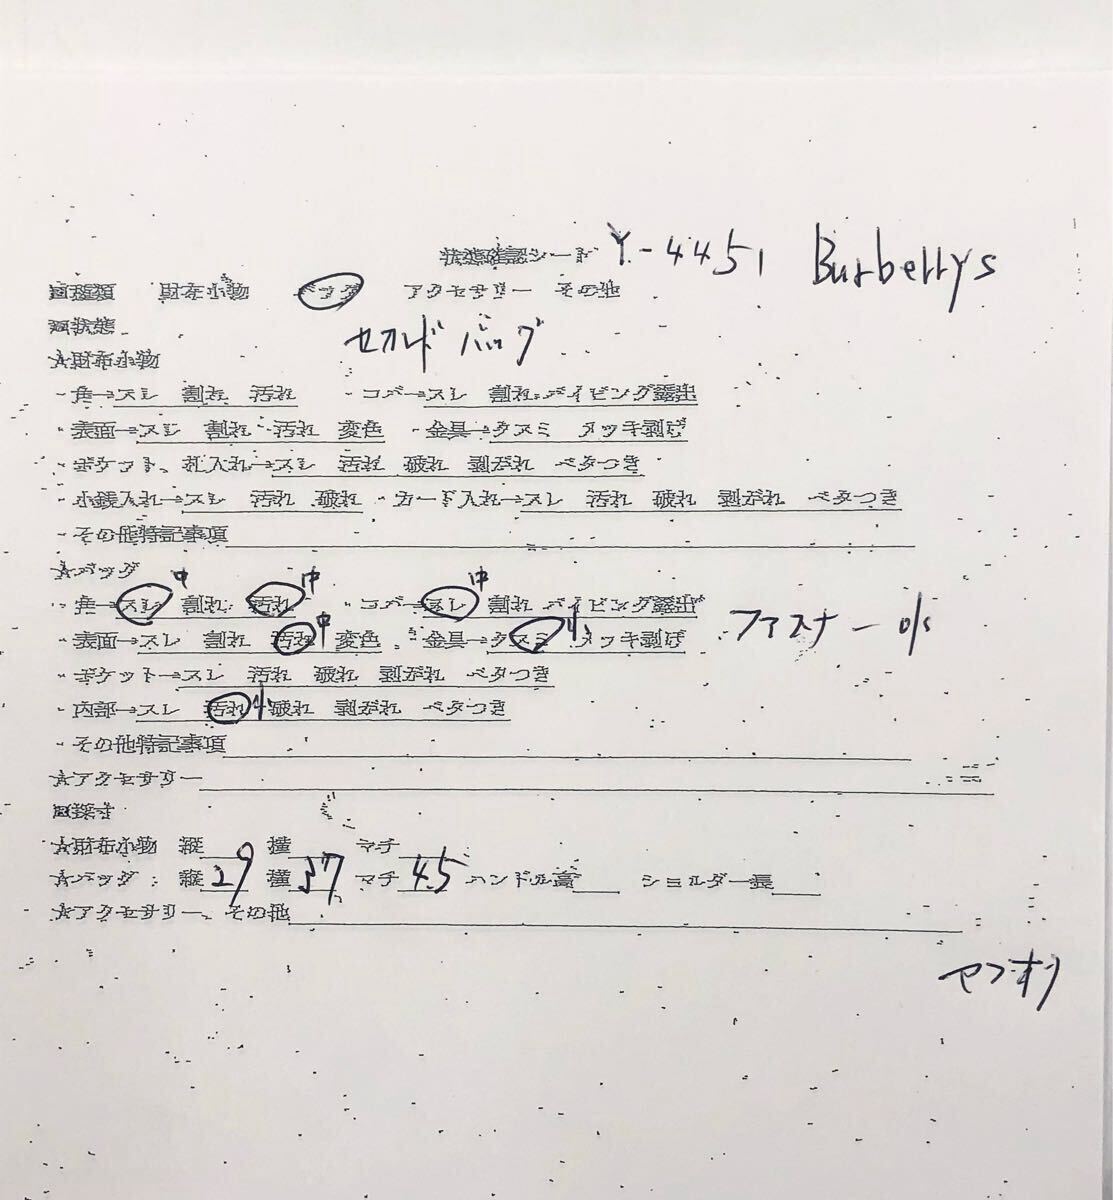 状態確認シート Y-4451 Burberrys
□種類 財布小物 バッグ アクセサリー その他
□状態 セカンドバッグ
☆財布小物
・角→スレ 割れ 汚れ ・コバ→スレ 割れ パイピング露出
・表面→スレ 割れ 汚れ 変色 ・金具→クスミ メッキ剥げ
・ポケット、札入れ→スレ 汚れ 破れ 剥がれ ベタつき
・小銭入れ→スレ 汚れ 破れ ・カード入れ→スレ 汚れ 破れ 剥がれ ベタつき
・その他特記事項
☆バッグ
・角→スレ 中 割れ 汚れ 中 ・コバ→スレ 中 割れ パイピング露出
・表面→スレ 割れ 汚れ 中 変色 ・金具→クスミ 小 メッキ剥げ ファスナー
・ポケット→スレ 汚れ 破れ 剥がれ ベタつき
・内部→スレ 汚れ 小 破れ 剥がれ ベタつき
・その他特記事項
☆アクセサリー
□採寸
☆財布小物 縦 横 マチ
☆バッグ: 縦 29 横 37 マチ 4.5 ハンドル高 ショルダー長
☆アクセサリー、その他